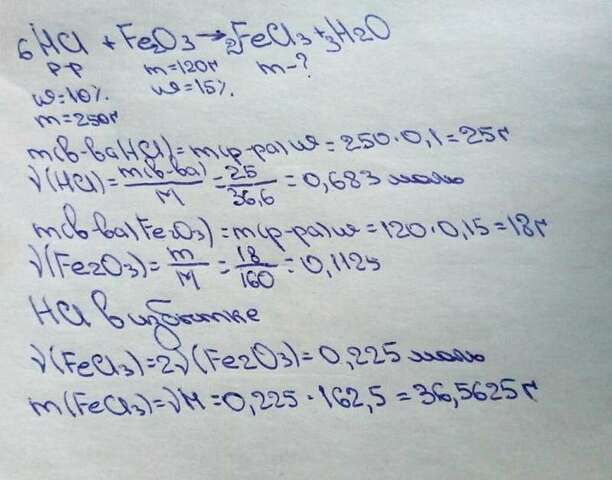 6HCl + Fe2O3 → 2FeCl3 + 3H2O
р-р m=120г m-?
ω=10% ω=15%
m=250г
m(в-ва HCl)=m(р-ра)ω=250·0,1=25г
ν(HCl)=m(в-ва)/M=25/36,6=0,683 моль
m(в-ва Fe2O3)=m(р-ра)ω=120·0,15=18г
ν(Fe2O3)=m/M=18/160=0,1125
HCl в избытке
ν(FeCl3)=2ν(Fe2O3)=0,225 моль
m(FeCl3)=νM=0,225·162,5=36,5625г